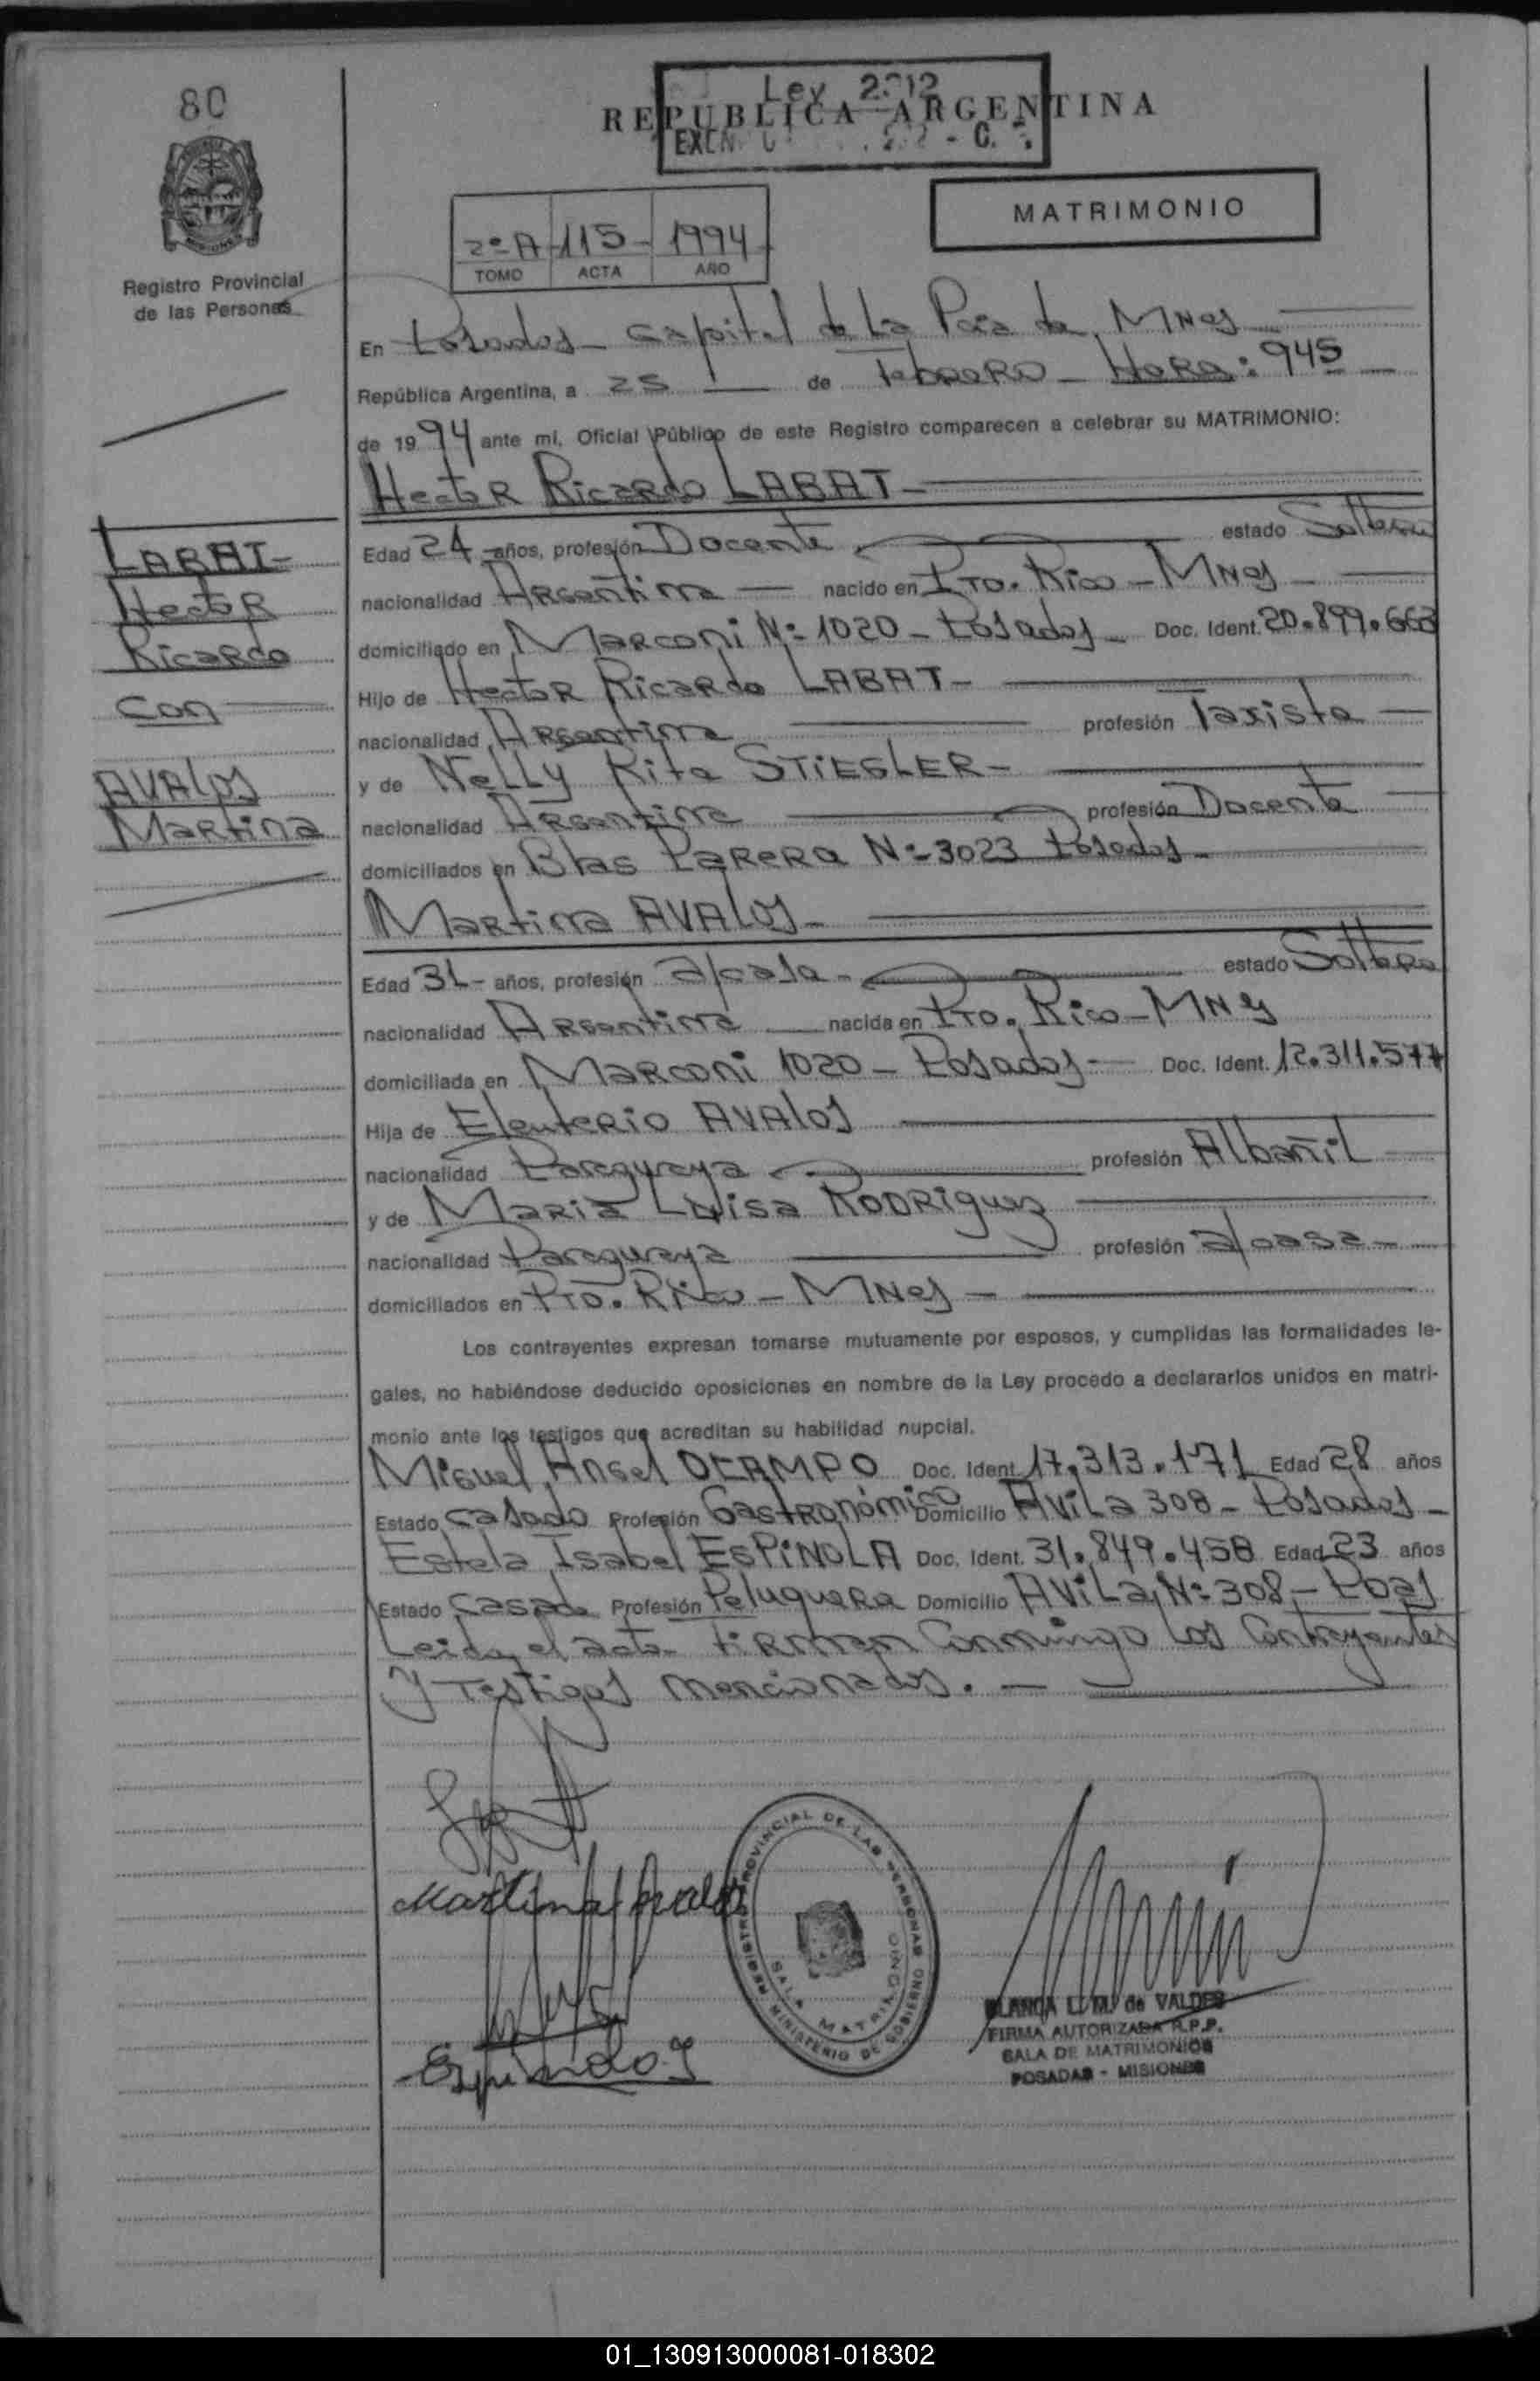 80
Ley 2212
REPUBLICA ARGENTINA
MATRIMONIO
2º A 115 - 1994
TOMO ACTA AÑO
Registro Provincial
de las Personas
En Posadas - Capital de La Pcia de Mnes
República Argentina, a 25 de Febrero - Hora: 945
de 1994 ante mí, Oficial Público de este Registro comparecen a celebrar su MATRIMONIO:
Hector Ricardo LABAT -
LABAT -
Hector
Ricardo
Con
AVALOS
Martina
Edad 24 - años, profesión Docente estado Soltero
nacionalidad Argentina nacido en Pto. Rico - Mnes -
domiciliado en Marconi Nº 1020 - Posadas - Doc. Ident. 20.899.663
Hijo de Hector Ricardo LABAT -
nacionalidad Argentina profesión Taxista
y de Nelly Rita STIEGLER -
nacionalidad Argentina profesión Docente
domiciliados en Blas Parera Nº 3023 Posadas -
Martina AVALOS -
Edad 31 - años, profesión a/casa - estado Soltera
nacionalidad Argentina nacida en Pto. Rico - Mnes
domiciliada en Marconi 1020 - Posadas - Doc. Ident. 12.311.577
Hija de Eleuterio AVALOS
nacionalidad Paraguaya profesión Albañil
y de Maria Luisa RODRIGUEZ
nacionalidad Paraguaya profesión a/casa -
domiciliados en Pto. Rico - Mnes -
Los contrayentes expresan tomarse mutuamente por esposos, y cumplidas las formalidades le-
gales, no habiéndose deducido oposiciones en nombre de la Ley procedo a declararlos unidos en matri-
monio ante los testigos que acreditan su habilidad nupcial.
Miguel Angel OCAMPO Doc. Ident. 17.313.171 Edad 28 años
Estado Casado Profesión Gastronómico Domicilio Avila 308 - Posadas -
Estela Isabel ESPINOLA Doc. Ident. 31.849.458 Edad 23 años
Estado Casada Profesión Peluquera Domicilio Avila Nº 308 - Pdas
Leida el acta firman Conmingo los Contrayentes
y Testigos mencionados. -
Martina Avalos
REGISTRO PROVINCIAL DE LAS PERSONAS
MINISTERIO DE GOBIERNO
SALA MATRIMONIO
BLANCA L. M. de VALDES
FIRMA AUTORIZADA R.P.P.
SALA DE MATRIMONIOS
POSADAS - MISIONES
01_130913000081-018302